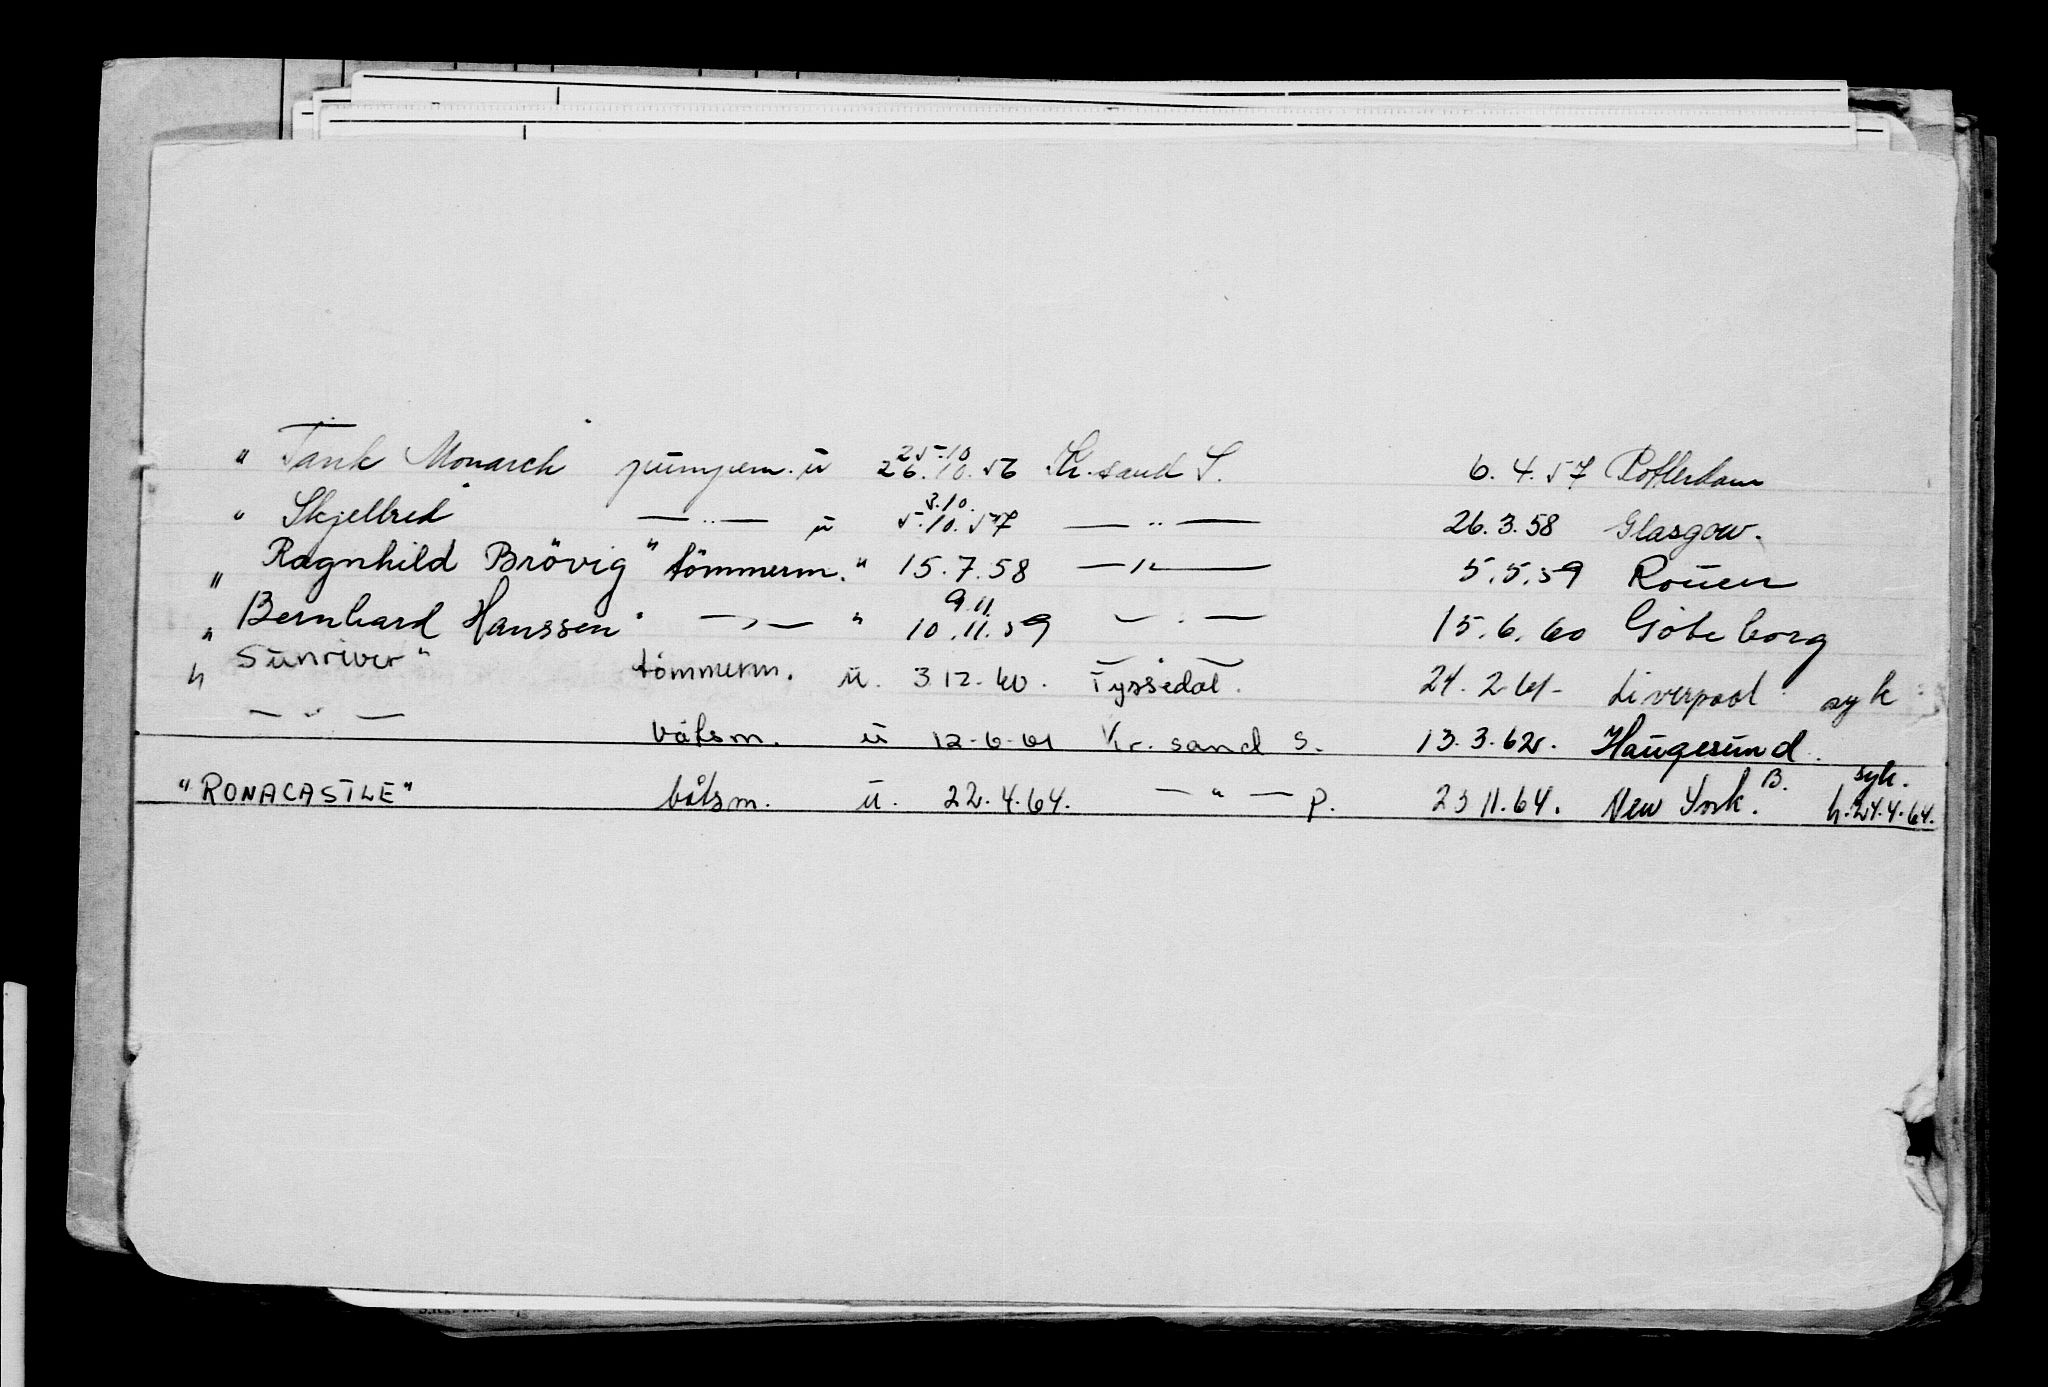 " Tank Monarch" pumpem. u 25.10 26.10.56 Kr.sand S. 6.4.57 Rotterdam
" Skjelbred" — " — u 3.10. 5.10.57 — " — 26.3.58 Glasgow.
" Ragnhild Brövig" tömmerm. " 15.7.58 — " — 5.5.59 Rouen
" Bernhard Hanssen" — " — " 9.11. 10.11.59 — " — 15.6.60 Göteborg
" Sunriver" tömmerm. u. 3.12.60. Tyssedal. 24.2.61- Liverpool syk
— " — båtsm. u 12-6-61 Kr. sand s. 13.3.62. Haugesund.
"RONACASTLE" båtsm. u. 22.4.64. — " — p. 23 11.64. New York. B. syk. h.24.4.64.